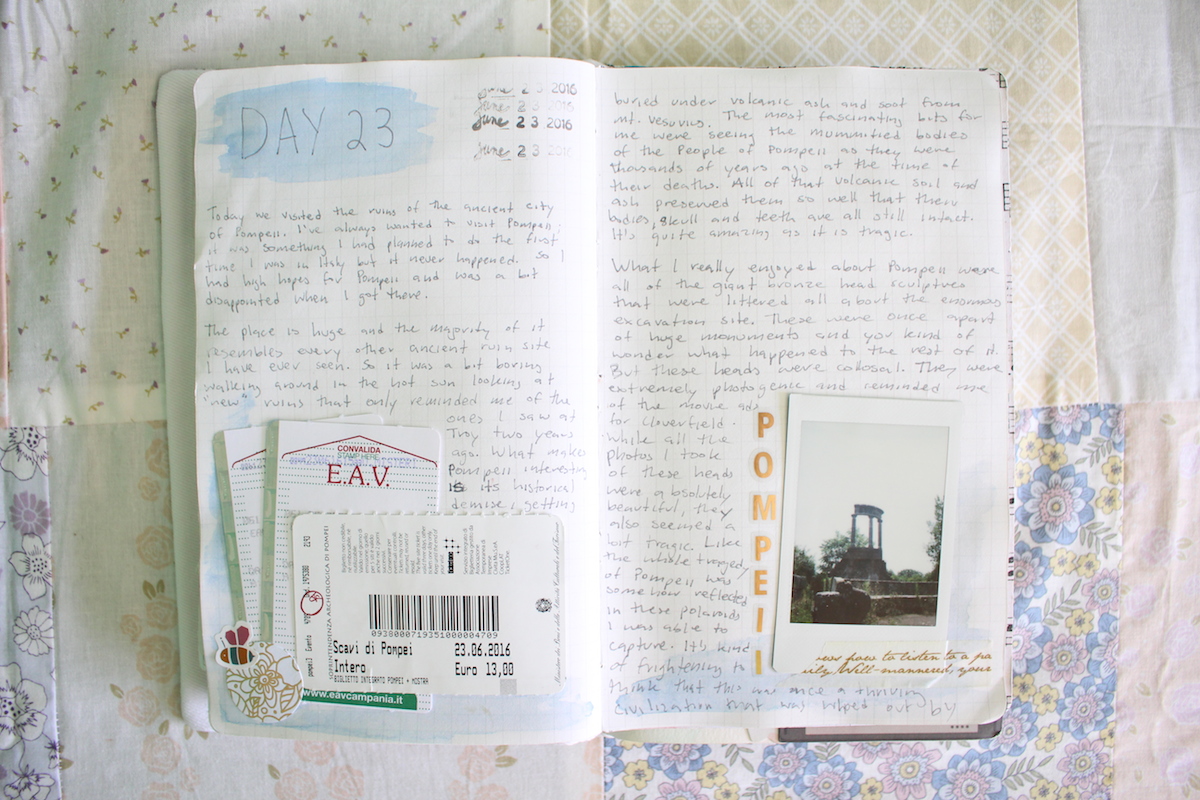 DAY 23
June 23 2016
June 23 2016
June 23 2016
June 23 2016
Today we visited the ruins of the ancient city
of Pompeii. I've always wanted to visit Pompeii;
it was something I had planned to do the first
time I was in Italy but it never happened. So I
had high hopes for Pompeii and was a bit
disappointed when I got there.
The place is huge and the majority of it
resembles every other ancient ruin site
I have ever seen. So it was a bit boring
walking around in the hot sun looking at
"new" ruins that only reminded me of the
ones I saw at
Troy two years
ago. What makes
Pompeii interesting
is its historical
demise, getting
CONVALIDA
STAMP HERE
E.A.V.
SOPRINTENDENZA ARCHEOLOGICA DI POMPEI
0938000719351000004709
Scavi di Pompei 23.06.2016
Intero Euro 13,00
BIGLIETTO INTEGRATO POMPEI + MOSTRA
www.eavcampania.it
buried under volcanic ash and soot from
Mt. Vesuvius. The most fascinating bits for
me were seeing the mummified bodies
of the People of Pompeii as they were
thousands of years ago at the time of
their deaths. All of that volcanic soil and
ash preserved them so well that their
bodies, skull and teeth are all still intact.
It's quite amazing as it is tragic.
What I really enjoyed about Pompeii were
all of the giant bronze head sculptures
that were littered all about the enormous
excavation site. These were once apart
of huge monuments and you kind of
wonder what happened to the rest of it.
But these heads were colosal. They were
extremely photogenic and reminded me
of the movie ads
for Cloverfield.
While all the
photos I took
of these heads
were absolutely
beautiful, they
also seemed a
bit tragic. Like
the whole tragedy
of Pompeii was
somehow reflected
in these polaroids
I was able to
capture. It's kind
of frightening to
think that this was once a thriving
civilization that was wiped out by
POMPEII
how to listen to a pa
ily. Well-mannered, your